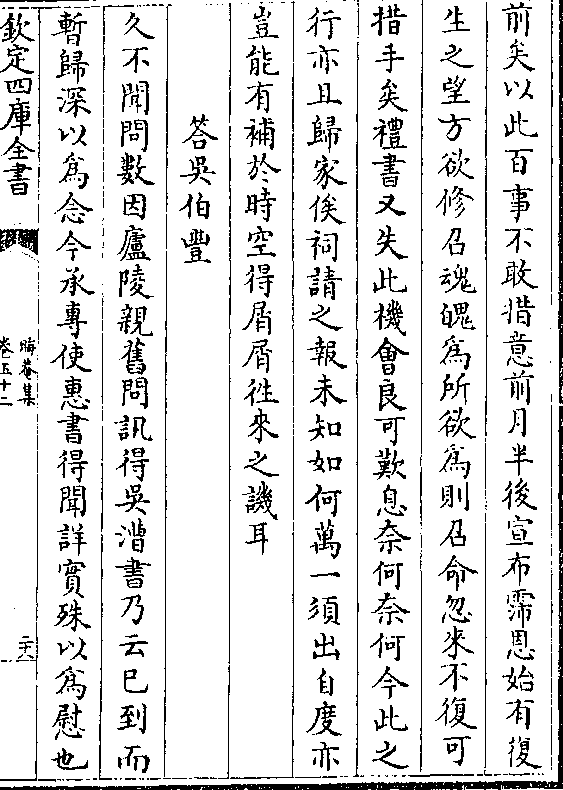 前矣以此百事不敢措意前月半後宣布霈恩始有復
生之望方欲修召魂魄為所欲為則召命忽來不復可
措手矣禮書又失此機會良可歎息奈何奈何今此之
行亦且歸家俟祠請之報未知如何萬一須出自度亦
豈能有補於時空得屑屑徃來之譏耳
答吳伯豐
久不聞問數因廬陵親舊問訊得吳漕書乃云已到而
暫歸深以為念今承專使惠書得聞詳實殊以為慰也
欽定四庫全書
晦菴集
卷五十二
二十八